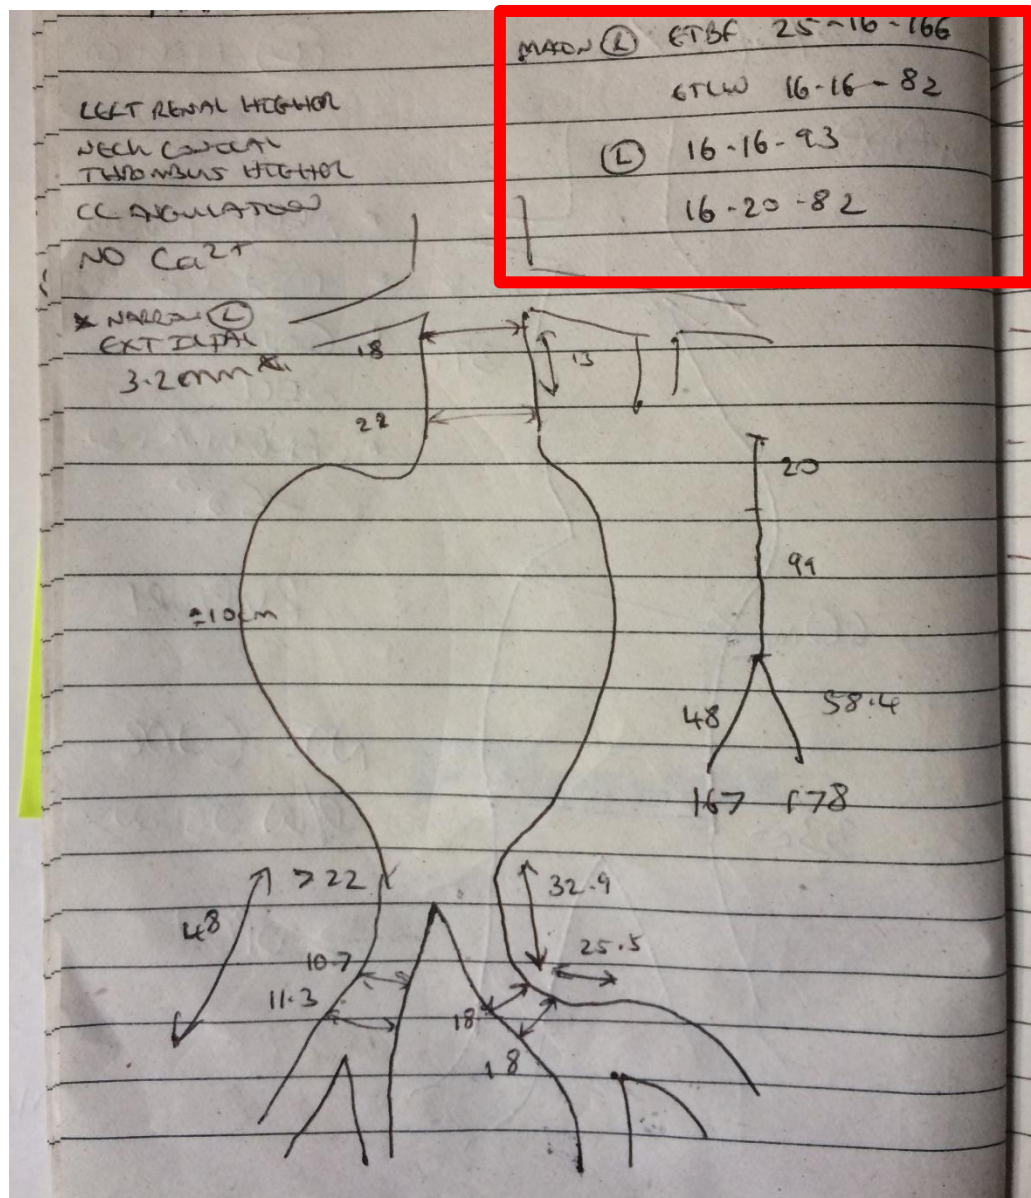 MAIN (R) ETBF 25-16-166
ETLW 16-16-82
(L) 16-16-93
16-20-82
LEFT RENAL HIGHER
NECK CONICAL
THROMBUS HIGHER
CC ANGULATION
NO Ca2+
* NARROW (L)
EXT ILIAC
3.2mm *
18
13
22
20
99
±10cm
48
58.4
167 178
>22
32.9
48
25.5
10.7
11.3
18
18